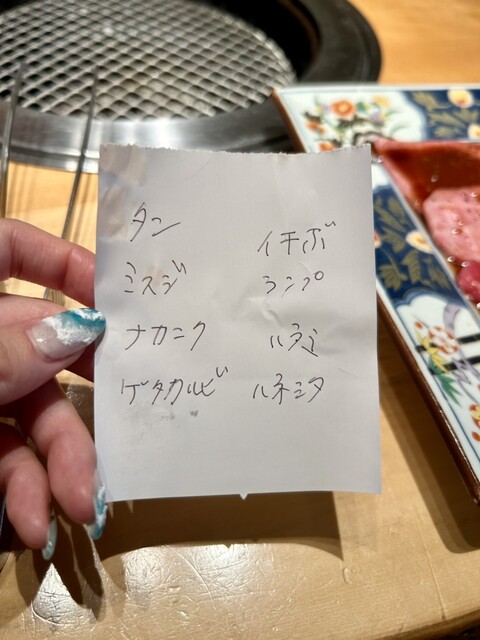 タン
ミスジ
ナカニク
ゲタカルビ
イチボ
ランプ
ハラミ
ハネミタ